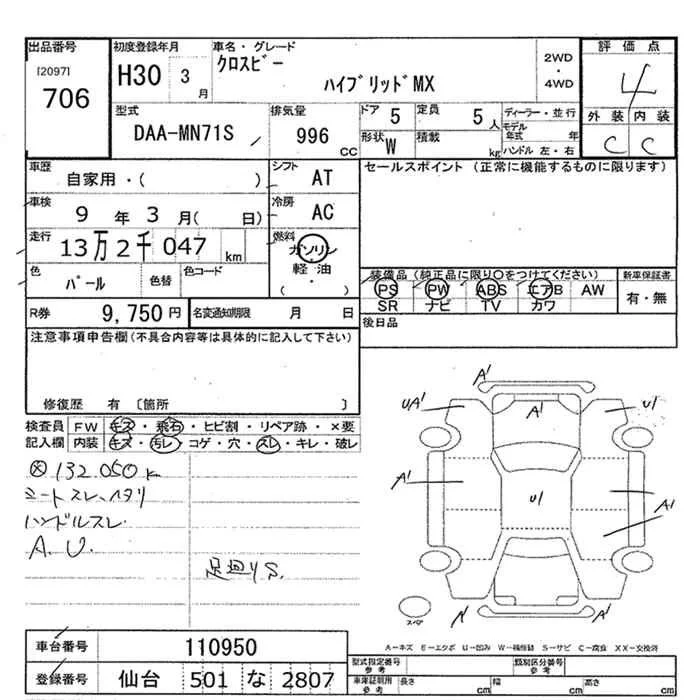 出品番号
[2097]
706
初度登録年月
H30 3 月
車名・グレード
クロスビー
ハイブリッドMX
2WD
・
4WD
評価点
4
外装 内装
C C
型式
DAA-MN71S
排気量
996 CC
ドア 5
定員 5 人
形状 W
積載 kg
ディーラー・並行
モデル年式 年
ハンドル 左・右
車歴
自家用・( )
シフト AT
セールスポイント (正常に機能するものに限ります)
車検
9 年 3 月( 日)
冷房 AC
走行
13万2千047 km
燃料
ガソリン
・
軽油
・
( )
色
パール
色替
色コード
装備品 (純正品に限り○をつけてください)
PS PW ABS エアB AW
SR ナビ TV カワ
新車保証書
有・無
R券 9,750 円
名変通知期限 月 日
後日品
注意事項申告欄(不具合内容等は具体的に記入して下さい)
修復歴 有 [箇所 ]
検査員 FW キズ・飛石・ヒビ割・リペア跡・×要
記入欄 内装 キズ・汚レ・コゲ・穴・スレ・キレ・破レ
132.050k
シートスレ、ヘタリ
ハンドルスレ
A.U.
足廻りS.
A'
UA'
A'
U1
A'
U1
A'
A'
A'
スペア
A-キズ E-エクボ U-凹み W-補修跡 S-サビ C-腐食 XX-交換済
車台番号 110950
登録番号 仙台 501 な 2807
型式指定番号
参考
類別区分番号
参考
車庫証明用
参考
長さ cm 幅 cm 高さ cm